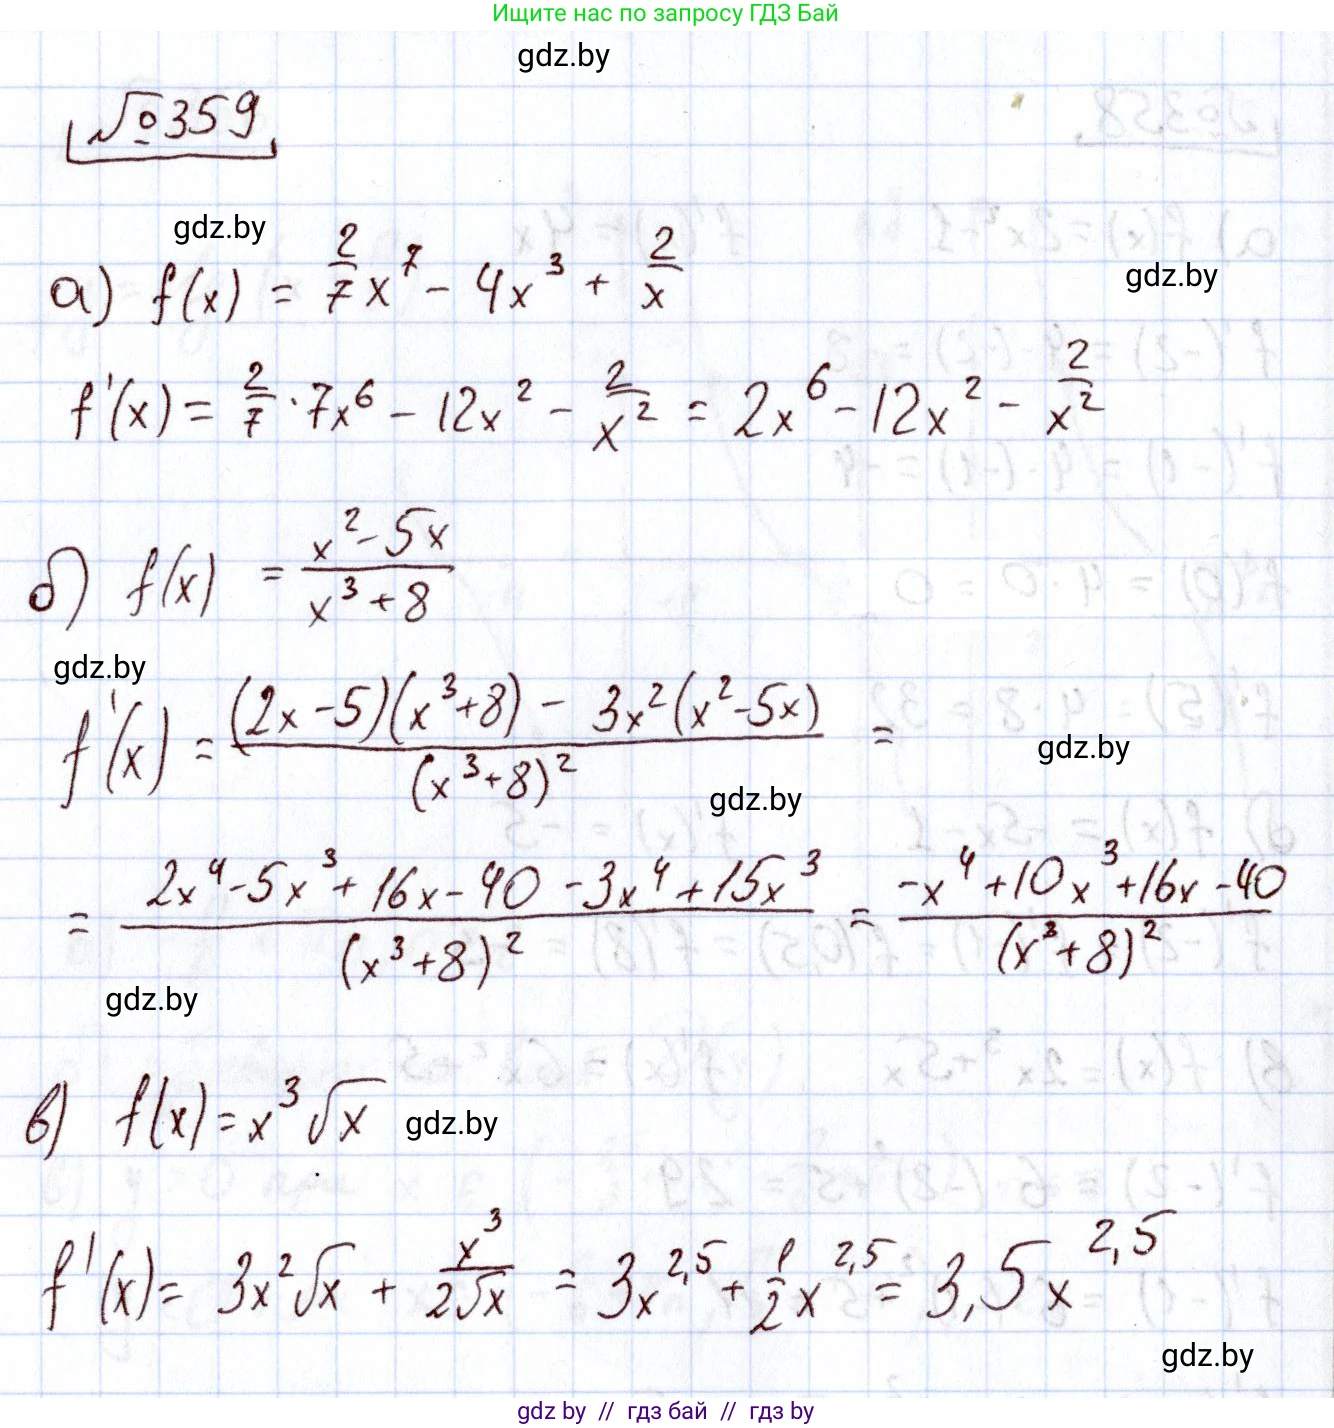 Ищите нас по запросу ГДЗ Бай
gdz.by
№359
gdz.by
а) f(x) = 2/7 x^7 - 4x^3 + 2/x
gdz.by
f'(x) = 2/7 · 7x^6 - 12x^2 - 2/x^2 = 2x^6 - 12x^2 - 2/x^2
б) f(x) = (x^2 - 5x)/(x^3 + 8)
gdz.by
f'(x) = ((2x - 5)(x^3 + 8) - 3x^2(x^2 - 5x))/(x^3 + 8)^2 =
gdz.by
gdz.by
= (2x^4 - 5x^3 + 16x - 40 - 3x^4 + 15x^3)/(x^3 + 8)^2 = (-x^4 + 10x^3 + 16x - 40)/(x^3 + 8)^2
gdz.by
в) f(x) = x^3 √x
gdz.by
f'(x) = 3x^2 √x + x^3/(2√x) = 3x^2,5 + 1/2 x^2,5 = 3,5x^2,5
gdz.by
gdz by // гдз бай // гдз by